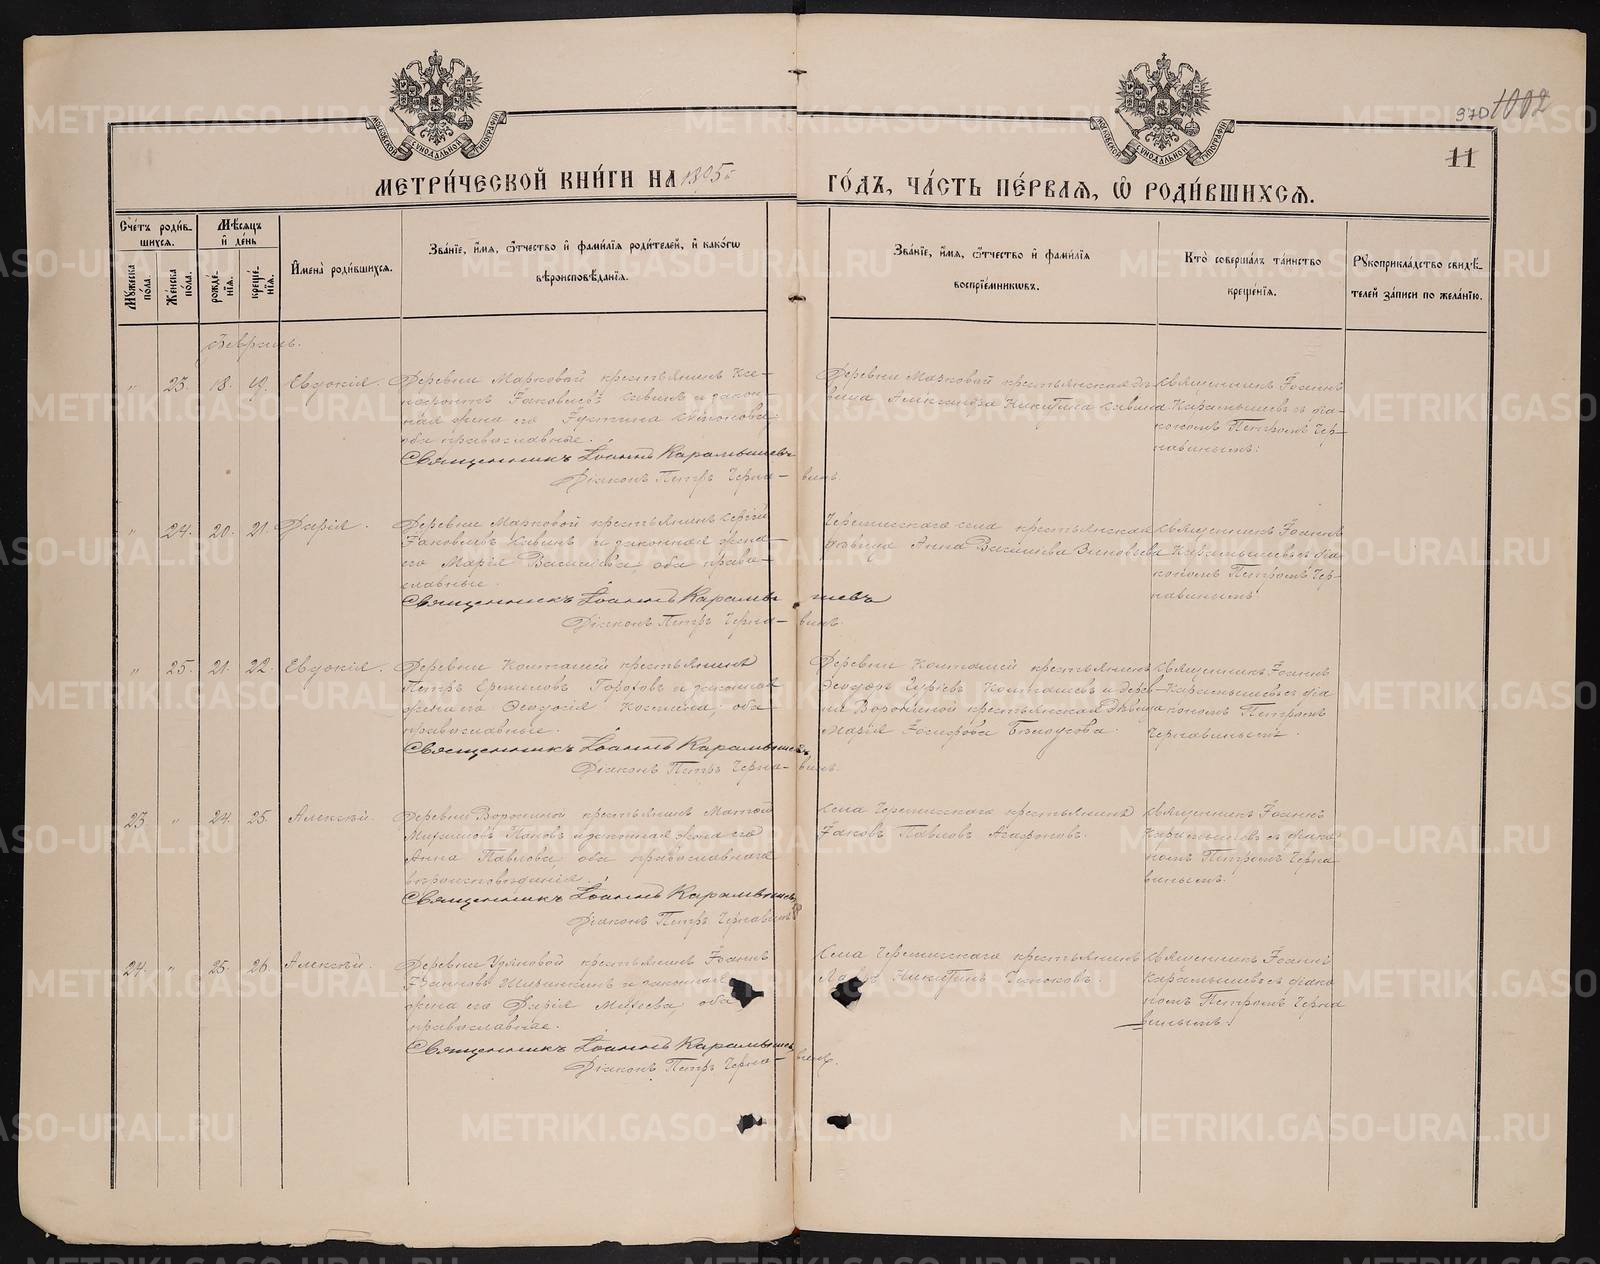 370 1002
11
МОСКОВСКОЙ СѴНОДАЛЬНОЙ ТИПОГРАФІИ
МОСКОВСКОЙ СѴНОДАЛЬНОЙ ТИПОГРАФІИ
МЕТРИ́ЧЕСКОЙ КНИ́ГИ НА 1895й ГО́ДЪ, ЧА́СТЬ ПЕ́РВАѦ, Ѡ РОДИ́ВШИХСѦ.
Сче́тъ роди́в-
шихсѧ.
Мꙋжеска по́ла.
Же́нска по́ла.
Мѣ́сѧцъ
и҆ де́нь
рожде́-
нїѧ.
креще́-
нїѧ.
И҆мена̀ роди́вшихсѧ.
Зва́нїе, и҆́мѧ, ѻ҆́тчество и҆ фами́лїѧ роди́телей, и҆ како́гѡ
вѣроисповѣ́данїѧ.
Зва́нїе, и҆́мѧ, ѻ҆́тчество и҆ фами́лїѧ
воспрїе́мникѡвъ.
Кто̀ соверша́лъ та́инство
креще́нїѧ.
Рꙋкоприкла́дство свидѣ́-
телей за́писи по жела́нїю.
Февраль.
" 23. 18. 19. Евдокія. Деревни Марковой крестьянинъ Ксе-
нофонтъ Іаковлевъ Савинъ и закон-
ная жена его Іустина
оба православные.
Священникъ Іоаннъ Карамышевъ
Діаконъ Петръ Чернавинъ.
Деревни Марковой крестьянская дѣ-
вица Александра Никитина Савина
Священникъ Іоаннъ
Карамышевъ съ діа-
кономъ Петромъ Чер-
навинымъ.
" 24. 20. 21. Дарія. Деревни Марковой крестьянинъ Сергій
Іаковлевъ Савинъ и законная жена
его Марія Васильева, оба право-
славные.
Священникъ Іоаннъ Карамышевъ
Діаконъ Петръ Чернавинъ.
Черемисскаго села крестьянская
дѣвица Анна Васильева Зиновьева
Священникъ Іоаннъ
Карамышевъ съ діа-
кономъ Петромъ Чер-
навинымъ.
" 25. 21. 22. Евдокія. Деревни Колташей крестьянинъ
Петръ Ермиловъ и законная
жена его Ѳеодосія оба
православные.
Священникъ Іоаннъ Карамышевъ
Діаконъ Петръ Чернавинъ.
Деревни Колташей крестьянинъ
Ѳеодоръ Гурьевъ Колташевъ и дерев-
ни Ворониной крестьянская дѣвица
Марія Іосифова Бѣлоусова.
Священникъ Іоаннъ
Карамышевъ съ діа-
кономъ Петромъ
Чернавинымъ.
23. " 24. 25. Алексѣй. Деревни Ворониной крестьянинъ Матѳей
Пановъ и законная жена его
Анна Павлова, оба православнаго
вѣроисповѣданія.
Священникъ Іоаннъ Карамышевъ
Діаконъ Петръ Чернавинъ
Села Черемисскаго крестьянинъ
Іаковъ Павловъ Агафоновъ.
Священникъ Іоаннъ
Карамышевъ съ діако-
номъ Петромъ Черна-
винымъ.
24. " 25. 26. Алексѣй. Деревни крестьянинъ Іоаннъ
Іоанновъ и законная
жена его Дарія оба
православные.
Священникъ Іоаннъ Карамышевъ
Діаконъ Петръ Чернавинъ.
Села Черемисскаго крестьянинъ
Никитинъ
Священникъ Іоаннъ
Карамышевъ съ діако-
номъ Петромъ Черна-
винымъ.
METRIKI.GASO-URAL.RU